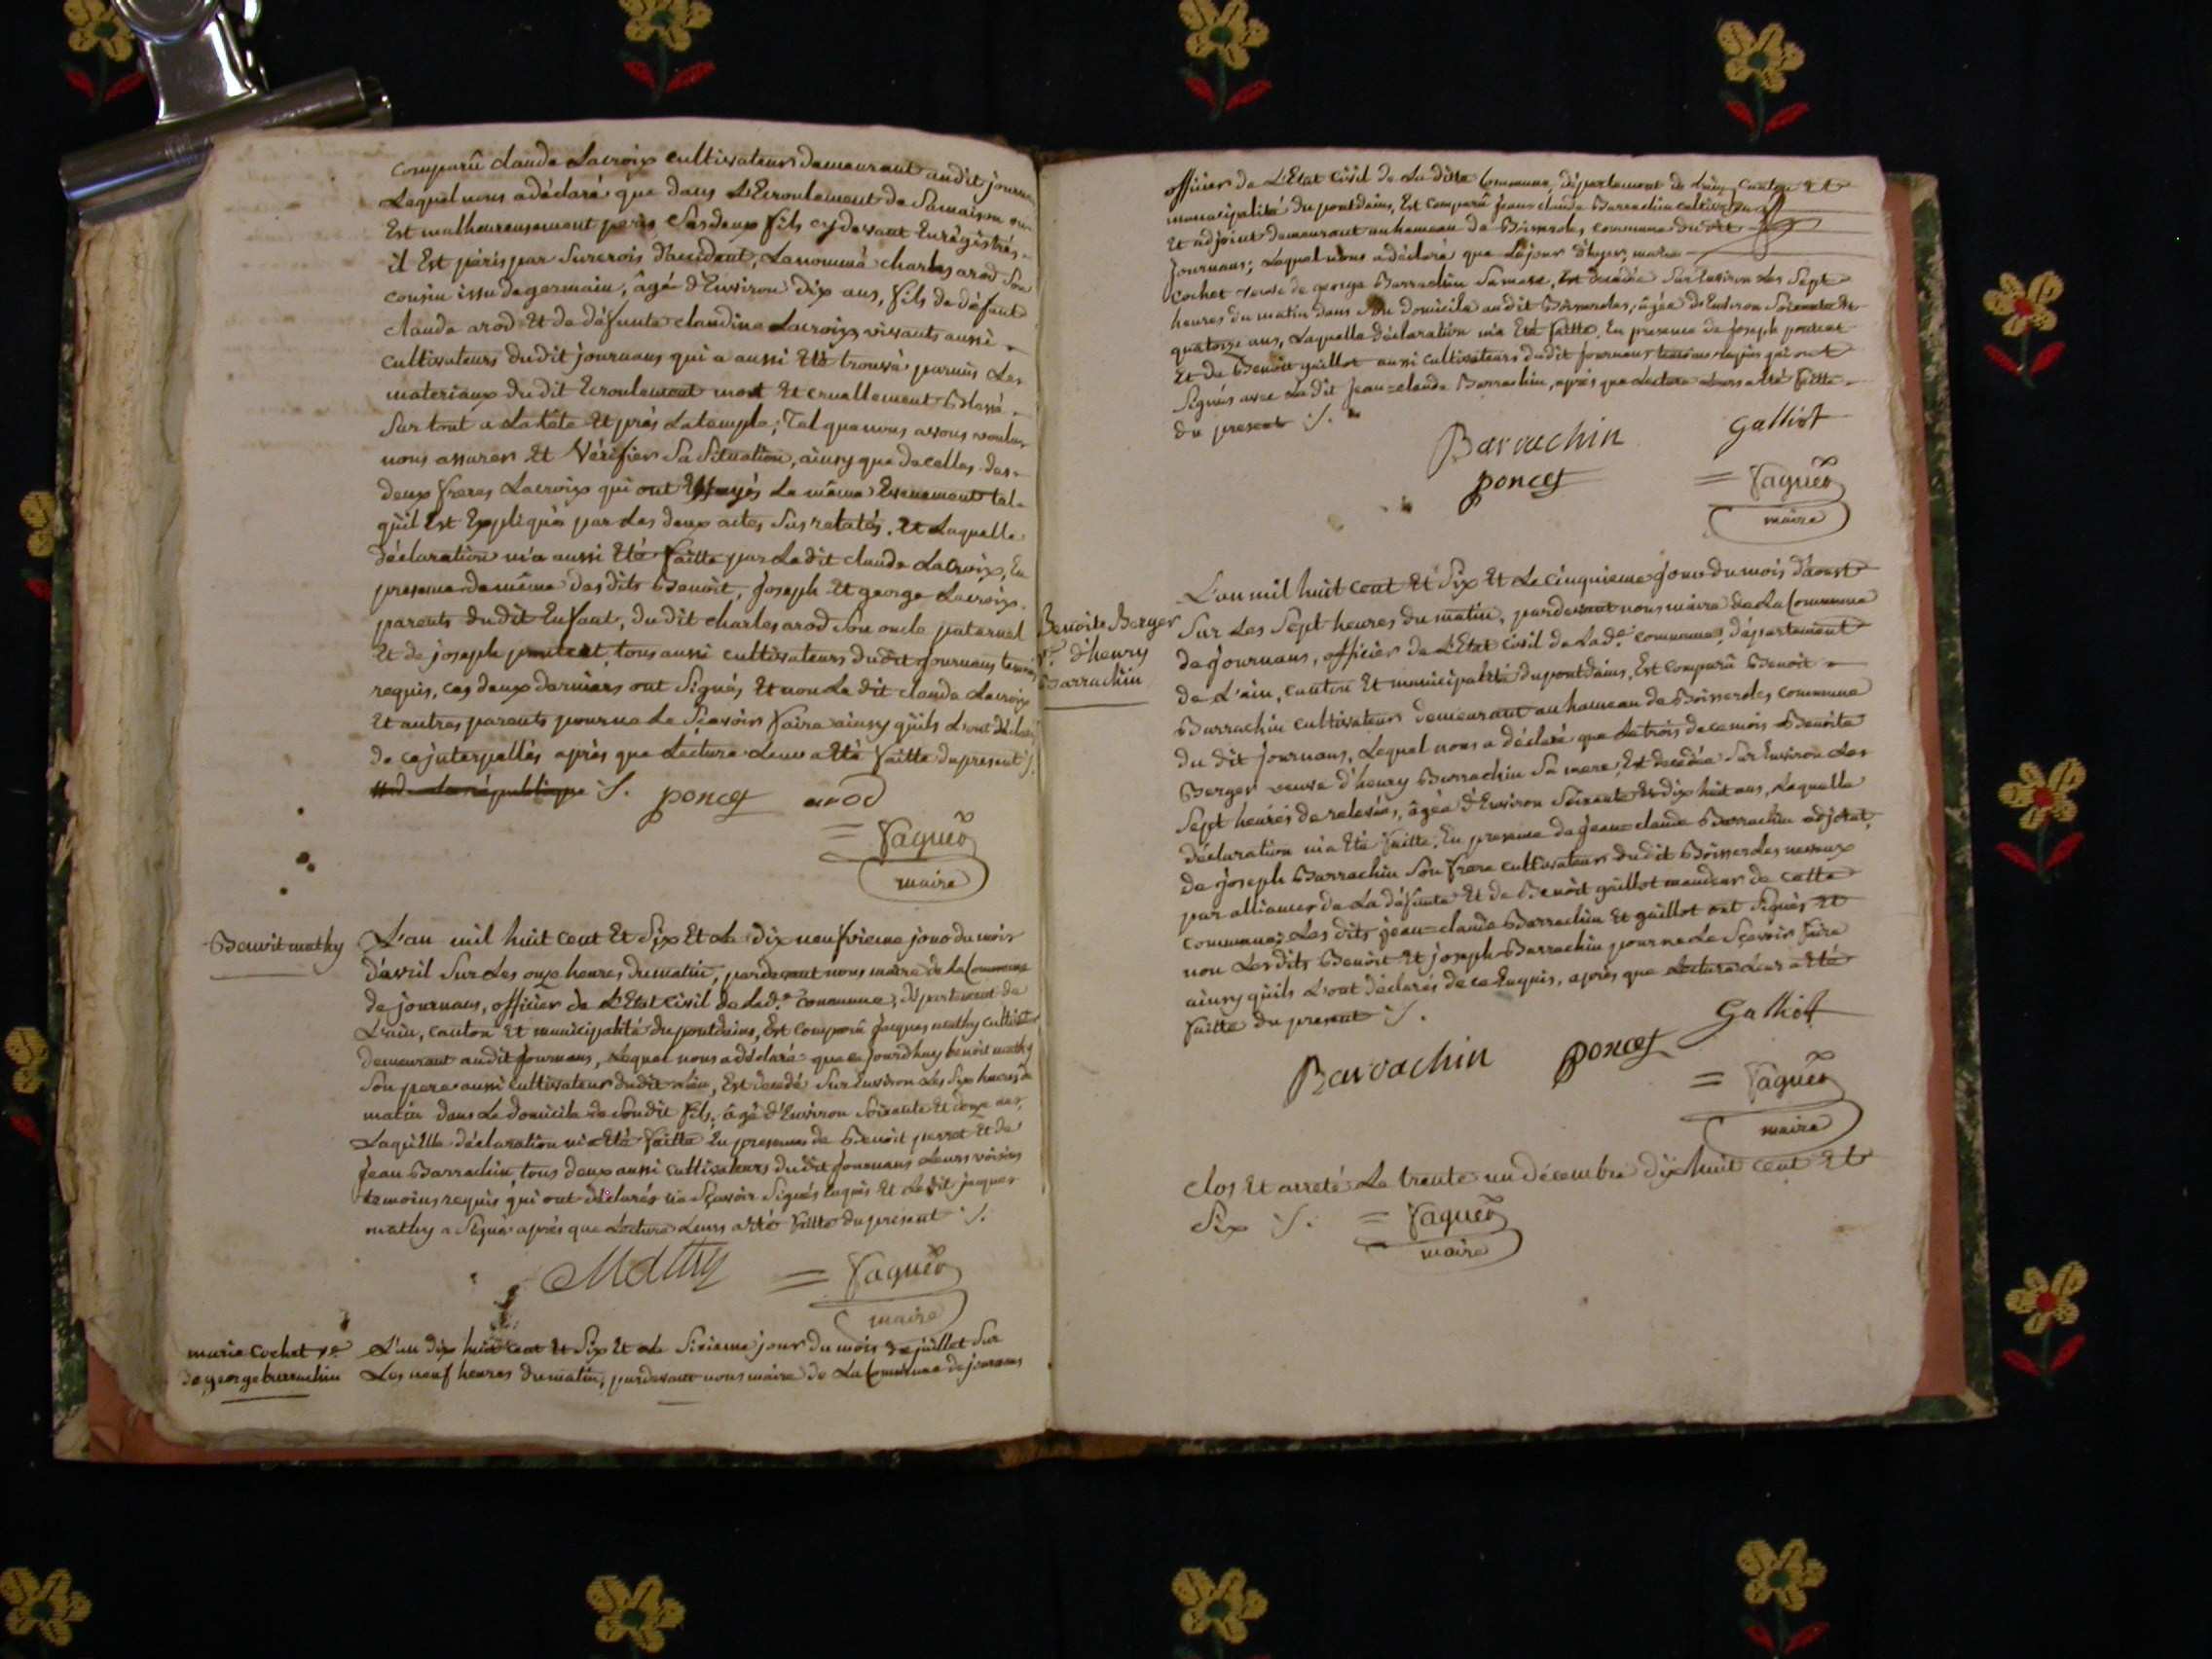 comparû claude Lacroix cultivateur demeurant audit journans
Lequel nous a déclaré que dans L'Ecroulement de Sa maison ou
Est malheureusement peris Ses deux fils cy devant Enrégistrés
il Est péris par Surcrois d'accident, Le nommé charles arod Son
cousin issu de germain, âgé d'Environ dix ans, fils de défunt
claude arod Et de défunte claudine Lacroix vivants aussi
cultivateurs dudit journans qui a aussi Eté trouvé parmis Les
materiaux du dit Ecroulement mort Et cruellement Blessé
Sur tout a La tête Et près La temple; Tel que nous avons voulus
nous assurer Et Vérifier Sa Situation, ainsy que de celles des
deux freres Lacroix qui ont Essuyés Le même Evenement tel
qu'il Est Expliqué par Les deux actes Susrelatés. Et Laquelle
déclaration m'a aussi Eté faitte par Le dit claude Lacroix, En
presence de même des dits Benoit, joseph Et george Lacroix
parents du dit Enfant, du dit charles arod Son oncle paternel
Et de joseph poncet, tous aussi cultivateurs dudit journans temoins
requis, ces deux derniers ont Signés, Et non Le dit claude Lacroix
Et autres parents pour ne Le Sçavoir faire ainsy qu'ils L'ont déclaré
de ce jnterpellés après que Lecture Leur a Eté faitte du present ./.
de la république ./. poncet arod
= Vaguer
maire
Benoit mathy
L'an mil huit cent Et Six Et Le dix neufvieme jour du mois
d'avril Sur Les onze heures du matin, pardevant nous maire de La Commune
de journans, officier de L'Etat Civil de Lad.e commune, département de
L'ain, canton Et municipalité du pontdains, Est comparû jacques mathy cultivateur
demeurant audit journans, Lequel nous a déclaré que ce jourdhuy benoit mathy
Son pere aussi cultivateur dudit Lieu, Est decedé Sur Environ Les Six heures du
matin dans Le domicile de Son dit fils, âgé d'Environ Soixante Et douze ans,
Laquelle déclaration m'a Eté faitte En presence de Benoit perret Et de
jean Barrachin, tous deux aussi cultivateurs dudit journans Leurs voisins
temoins requis qui ont déclarés ne Sçavoir Signés Enquis Et Le dit jacques
mathy a Signé après que Lecture Leurs a Eté faitte du present ./.
Mathy = Vaguer
maire
marie cochet v.e
de george barrachin
L'an dix huit cent Et Six Et Le Sixieme jour du mois de juillet Sur
Les neuf heures du matin, pardevant nous maire de La Commune de journans
officier de L'Etat Civil de La ditte Commune, département de L'ain, Canton Et
municipalité du pontdains, Est comparû jean claude Barrachin cultivateur
Et adjoint demeurant au hameau de Boisserolles commune du dit
journans; Lequel nous a déclaré que Le jour d'hyer, marie
cochet veuve de george Barrachin Sa mere, Est decedée Sur Environ Les Sept
heures du matin dans Son domicile au dit Boisserolles, âgée d'Environ Soixante Et
quatorze ans, Laquelle déclaration m'a Eté faitte En presence de joseph poncet
Et de Benoit guillot aussi cultivateurs dudit journans temoins requis qui ont
Signés avec Le dit jean=claude Barrachin, après que Lecture Leurs a Eté faitte
du present ./.
Barrachin Galliot
poncet = Vaguer
maire
Benoite Berger
v.e d'henry
Barrachin
L'an mil huit cent Et Six Et Le cinquieme jour du mois d'aoust
Sur Les Sept heures du matin, pardevant nous maire de La Commune
de journans, officier de L'Etat Civil de Lad.e commune, département
de L'ain, canton Et municipalité du pontdains, Est comparû Benoit
Barrachin cultivateur demeurant au hameau de Boisserolles commune
du dit journans, Lequel nous a déclaré que Le trois de ce mois Benoite
Berger veuve d'henry Barrachin Sa mere, Est decedée Sur Environ Les
Sept heures de relevées, âgée d'Environ Soixante Et dix huit ans, Laquelle
déclaration m'a Eté faitte, En presence de jean=claude Barrachin adjoint,
de joseph Barrachin Son frere cultivateur dudit Boisserolles neveux
par alliances de La défunte Et de Benoit guillot de cette
commune; Les dits jean=claude Barrachin Et guillot ont Signés Et
non Les dits Benoit Et joseph Barrachin pour ne Le Sçavoir faire
ainsy qu'ils L'ont déclarés de ce Enquis, après que Lecture Leur a Eté
faitte du present ./.
Barrachin poncet Galliot
= Vaguer
maire
Clos Et arreté Le trente un décembre dix huit cent Et
Six ./. = Vaguer
maire